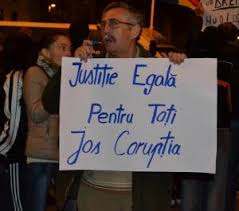 Justiție Egală
Pentru Toți
Jos Corupția